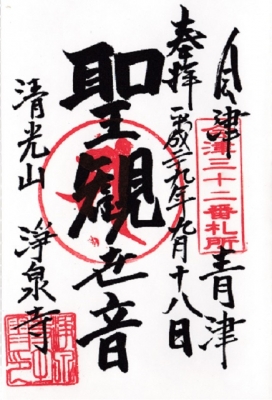 会津 青津
津三十二番札所
奉拝 平成二九年九月十八日
聖観世音
清光山 浄泉寺